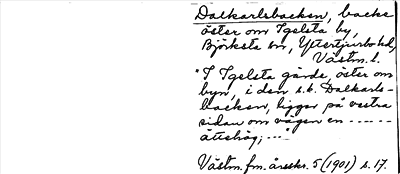 Dalkarlsbacken, backe
öster om Igelsta by,
Björksta sn, Yttertjurbo hd,
Västm. l.
"I Igelsta gärde, öster om
byn, i den s.k. Dalkarls-
backen, ligger på vestra
sidan om vägen en ------
ättehög; ---".
Västm. fm. årsskr. 5 (1901) s. 17.